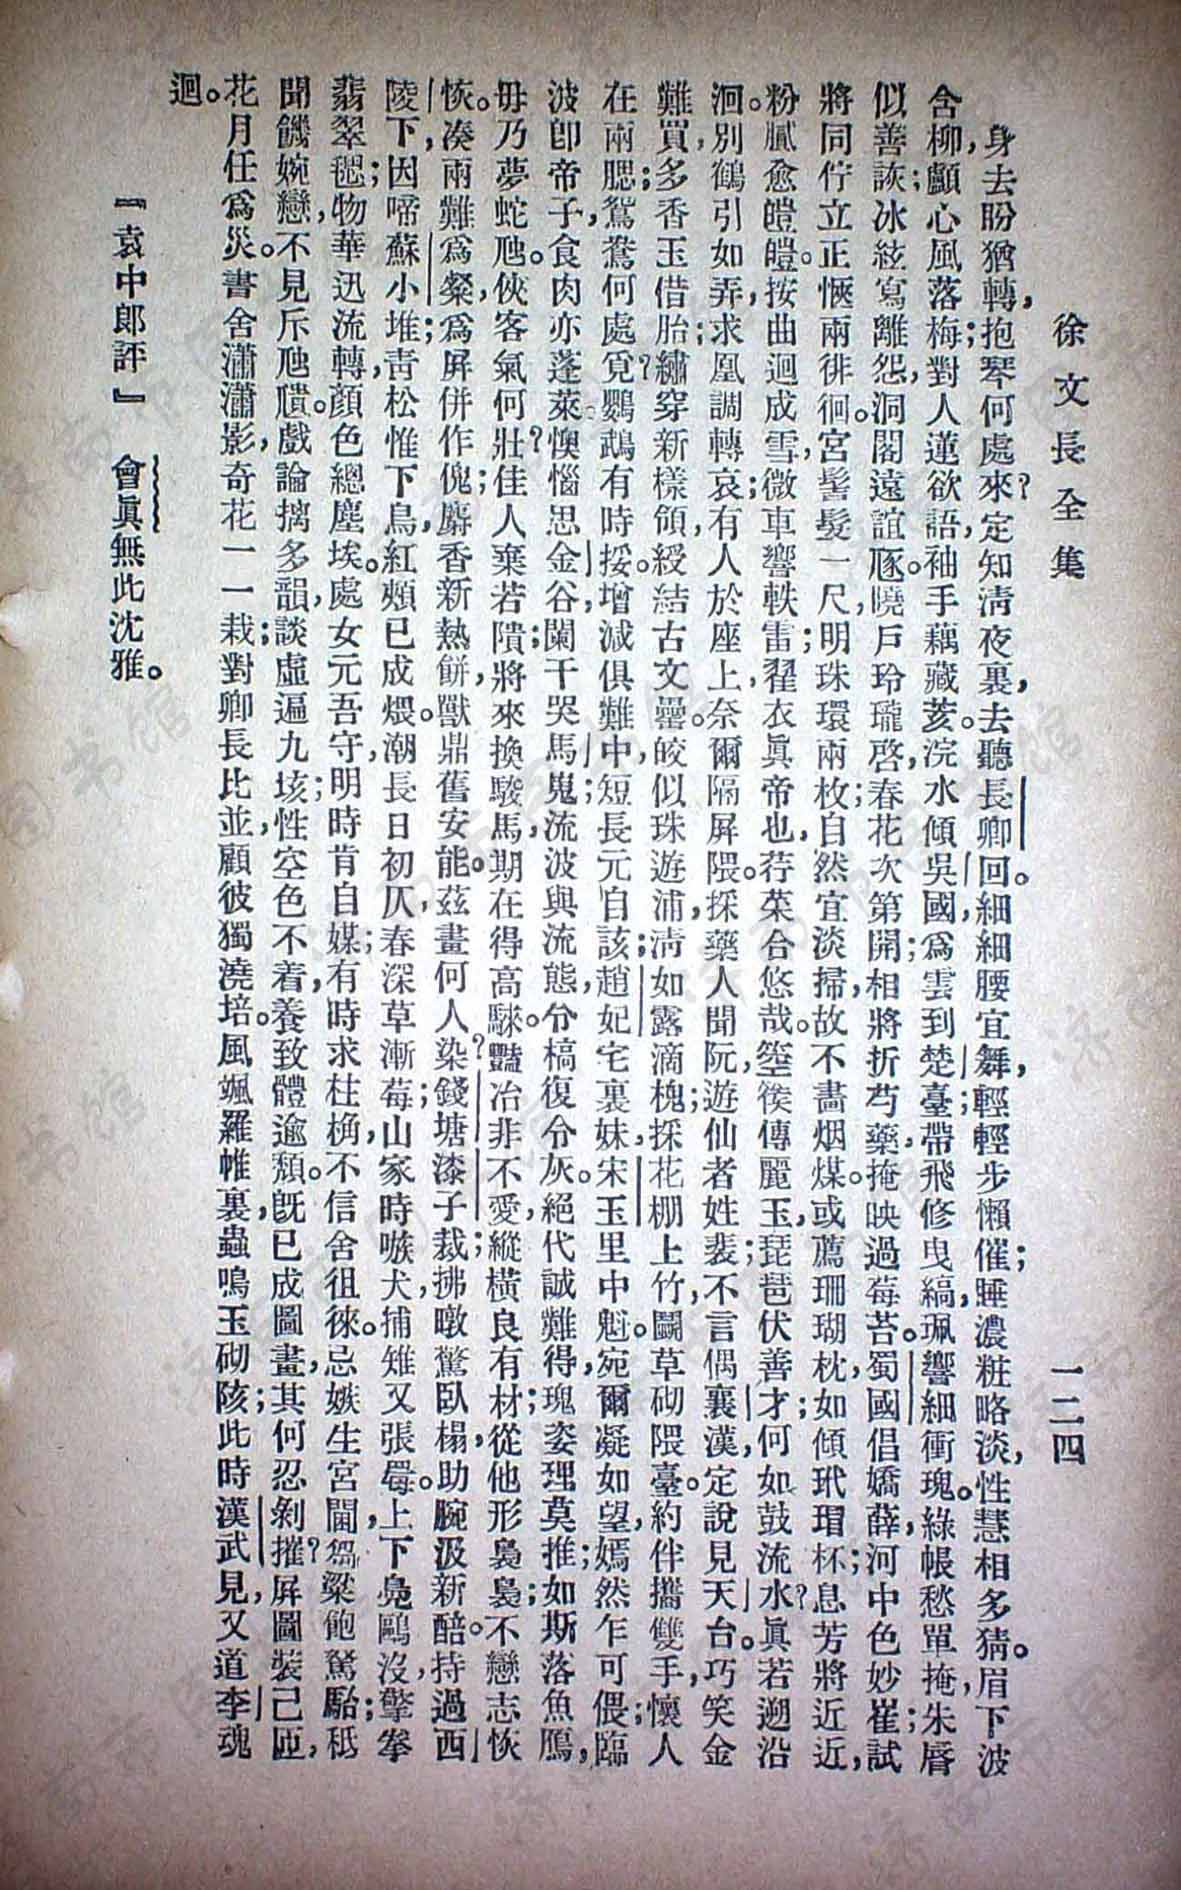 徐文長全集
一二四
身去盼猶轉，抱琴何處來？定知清夜裏，去聽長卿回。細細腰宜舞，輕輕步懶催；睡濃粧略淡，性慧相多猜。眉下波
含柳，顱心風落梅；對人蓮欲語，袖手藕藏荄。浣水傾吳國，爲雲到楚臺；帶飛修曳縞，珮響細衝瑰。綠帳愁單掩，朱唇
似善詼；冰絃寫離怨，洞閣遠誼豗。曉戶玲瓏啓，春花次第開；相將折芍藥，掩映過莓苔。蜀國倡嬌薛，河中色妙崔；試
將同佇立，正愜兩徘徊。宮髻髮一尺，明珠環兩枚；自然宜淡掃，故不畵烟煤。或薦珊瑚枕，如傾玳瑁杯；息芳將近近，
粉膩愈皚皚。按曲迴成雪，微車響軼雷；翟衣眞帝也，荇菜合悠哉。箜篌傳麗玉，琵琶伏善才；何如鼓流水？眞若遡沿
洄。別鶴引如弄，求凰調轉哀；有人於座上，奈爾隔屏隈。採藥人聞阮，遊仙者姓裴；不言偶襄漢，定說見天台。巧笑金
難買，多香玉借胎；繡穿新樣領，綬結古文罍。皎似珠遊浦，淸如露滴槐；採花棚上竹，鬬草砌隈臺。約伴攜雙手，懷人
在兩腮；鴛鴦何處覓？鸚鵡有時挼。增減俱難中，短長元自該；趙妃宅裏妹，宋玉里中魁。宛爾凝如望，嫣然乍可偎；臨
波卽帝子，食肉亦蓬萊。懊惱思金谷，闌干哭馬嵬；流波與流態，分槁復分灰。絕代誠難得，瑰姿理莫推；如斯落魚鴈，
毋乃夢蛇虺。俠客氣何壯？佳人棄若隤；將來換駿馬，期在得高騋。豔冶非不愛，縱橫良有材；從他形裊裊，不戀志恢
恢。湊兩難爲粲，爲屏併作傀；麝香新熱餅，獸鼎舊安能。茲畫何人染？錢塘漆子裁；拂暾驚臥榻，助腕汲新醅。持過西
陵下，因啼蘇小堆；靑松惟下鳥，紅頰已成煨。潮長日初仄，春深草漸莓；山家時嗾犬，捕雉又張罞。上下鳧鷗沒，擎拳
翡翠毸；物華迅流轉，顏色總塵埃。處女元吾守，明時肯自媒；有時求柱桷，不信舍徂徠。忌嫉生宮閫，鴛粱飽駑駘；秪
聞饑婉戀，不見斥虺隤。戲論摛多韻，談虛遍九垓；性空色不着，養致體逾頹。旣已成圖畫，其何忍剝摧？屏圖裝己匝，
花月任爲災。書舍瀟瀟影，奇花一一栽；對卿長比並，顧彼獨澆培。風颯羅帷裏，蟲鳴玉砌陔；此時漢武見，又道李魂
迴。
『袁中郎評』　會眞無此沈雅。